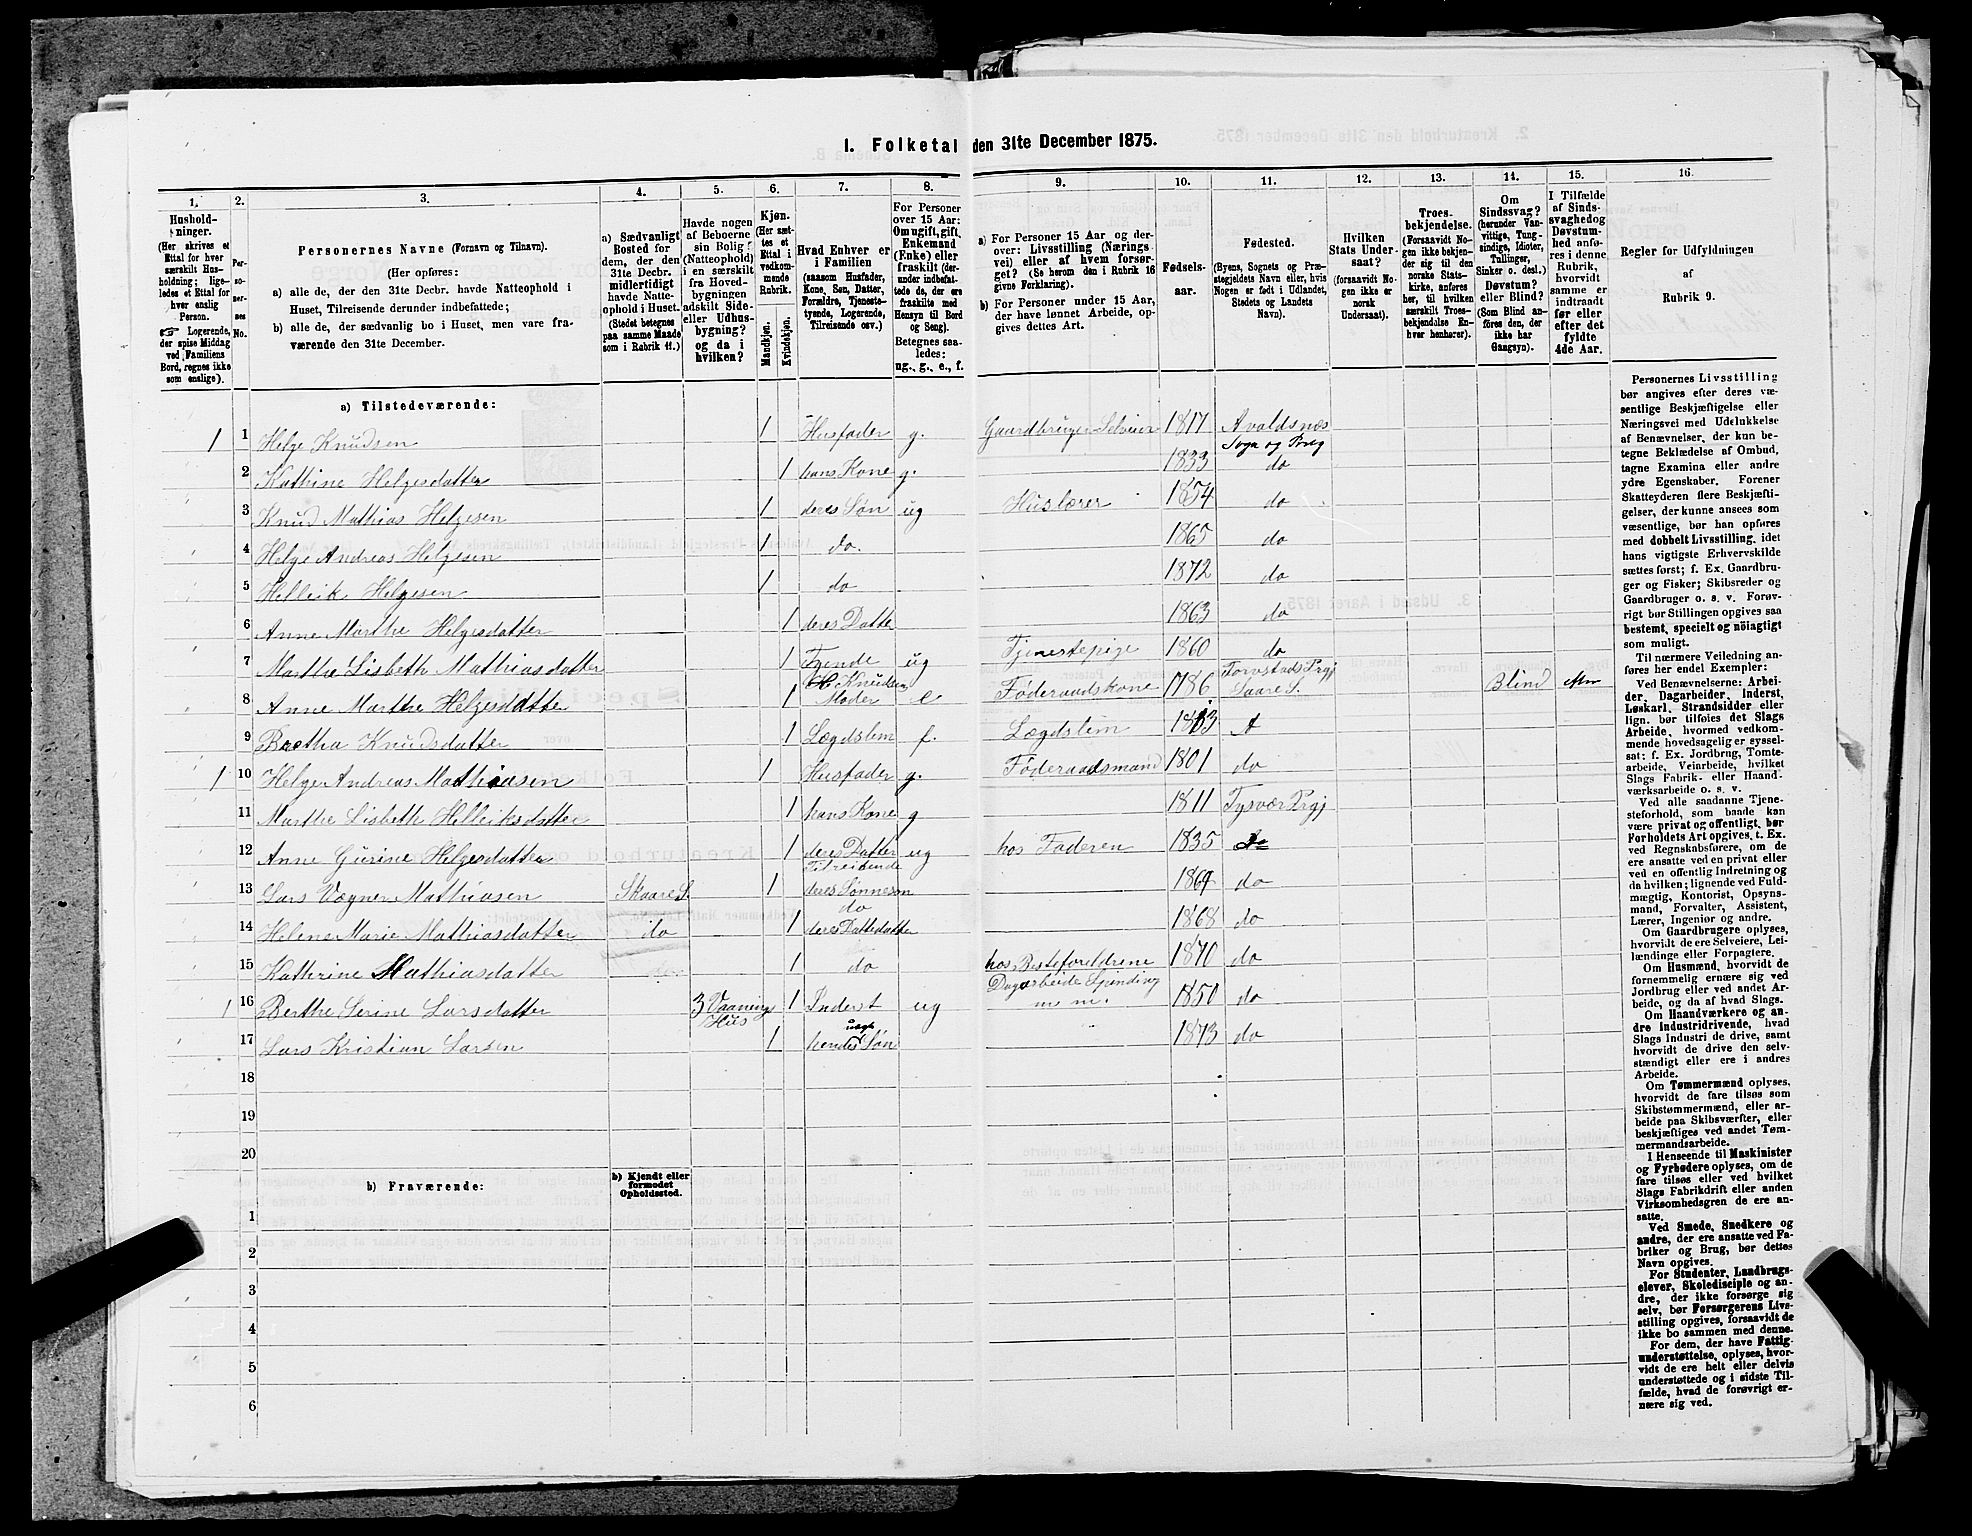 I. Folketal den 31te December 1875.
1. 2. 3. 4. 5. 6. 7. 8. 9. 10. 11. 12. 13. 14. 15. 16.
Husholdninger.
(Her skrives et
Ettal for hver
særskilt Husholdning;
ligeledes et Ettal for
hver enslig
Person.
☞ Logerende,
der spise Middag
ved Familiens
Bord, regnes ikke
som enslige).
Personernes No.
Personernes Navne (Fornavn og Tilnavn).
(Her opføres:
a) alle de, der den 31te Decbr. havde Natteophold i
Huset, Tilreisende derunder indbefattede;
b) alle de, der sædvanlig bo i Huset, men vare fraværende
den 31te December.
a) Sædvanligt
Bosted for
dem, der den
31te Decbr.
midlertidigt
havde Natteophold
i Huset.
(Stedet betegnes
paa samme Maade
som i Rubrik 11.)
Havde nogen
af Beboerne
sin Bolig
(Natteophold)
i en særskilt
fra Hovedbygningen
adskilt Side-
eller Udhusbygning?
og da i
hvilken?
Kjøn.
(Her sættes
et
Ettal i
vedkommende
Rubrik.
Mandkjøn.
Kvindekjøn.
Hvad Enhver er
i Familien
(saasom Husfader,
Kone, Søn, Datter,
Forældre, Tjenestetyende,
Logerende,
Tilreisende osv.)
For Personer
over 15 Aar:
Om ugift, gift,
Enkemand
(Enke) eller
fraskilt (derunder
indbefattet
de, der ere
fraskilte med
Hensyn til Bord
og Seng).
Betegnes saaledes:
ug., g., e., f.
a) For Personer 15 Aar og derover:
Livsstilling (Næringsvei)
eller af hvem forsørget?
(Se herom den i Rubrik 16
givne Forklaring).
b) For Personer under 15 Aar,
der have lønnet Arbeide, opgives
dettes Art.
Fødselsaar.
Fødested.
(Byens, Sognets og Præstegjeldets
Navn eller, hvis
Nogen er født i Udlandet,
Stedets og Landets
Navn).
Hvilken
Stats Undersaat?
(forsaavidt Nogen
ikke er
norsk
Undersaat).
Troesbekjendelse.
(Forsaavidt Nogen
ikke bekjender
sig til den
norske Statskirke,
anføres
her, til hvilken
særskilt Troesbekjendelse
Enhver
henhører).
Om
Sindssvag?
(herunder Vanvittige,
Tungsindige,
Idioter,
Tullinger,
Sinker o. desl.)
Døvstum?
eller Blind?
(Som Blind anføres
den, der
ikke har
Gangsyn).
I Tilfælde
af Sindssvaghed
og
Døvstumhed
anføres
i denne
Rubrik,
hvorvidt
samme er
indtraadt
før eller
efter det
fyldte
4de Aar.
Regler for Udfyldningen
af
Rubrik 9.
a) Tilstedeværende:
1 1 Helge Knudsen 1 Husfader g. Gaardbruger Selveier 1817 Avaldsnes Sogn og Præg
2 Kathine Helgesdatter 1 hans Kone g. 1833 do
3 Knud Mathias Helgesen 1 deres Søn ug Huslærer 1854 do
4 Helge Andreas Helgesen 1 do. 1865 do
5 Helleik Helgesen 1 do 1872 do
6 Anne Marthe Helgesdatter 1 deres Datter 1863 do
7 Marthe Lisbeth Mathiasdatter 1 Tyende ug Tjenestepige 1860 do
8 Anne Marthe Helgesdatter 1 H Knudsen Moder e Föderaadskone 1786 Torvestads Prgj Skaare S. Blind
9 Bertha Knudsdatter 1 Lægdslem f. Lægdslem
1 10 Helge Andreas Mathiasen 1 Husfader g. Föderaadsmand 1801 do
11 Marthe Lisbeth Helleiksdatter 1 hans Kone g 1811 Tysvær Prgj
12 Anne Gurine Helgesdatter 1 deres Datter ug hos Faderen 1835
13 Lars Vægner Mathiasen Skaare S. 1 Tilreisende deres Sønnesøn 1869 do
14 Helene Marie Mathiasdatter do 1 do deres Datterdatter 1868 do
15 Kathrine Mathiasdatter 1 do hos Besteforeldrene 1870 do
1 16 Berthe Serine Larsdatter 3 Vaanings Hus 1 Inderst ug Dagarbeide Spinding m m. 1850 do
17 Lars Kristian Larsen 1 hendes uægte Søn 1873 do
18
19
20
b) Fraværende:
b) Kjendt eller
formodet
Opholdssted.
1
2
3
4
5
6
Personernes Livsstilling
bør angives efter deres væsentlige
Beskjæftigelse eller
Næringsvei med Udelukkelse
af Benævnelser, der kun betegne
Beklædelse af Ombud,
tagne Examina eller andre
ydre Egenskaber. Forener
Skatteyderen flere Beskjæftigelser,
der kunne ansees som
væsentlige, bør han opføres
med dobbelt Livsstilling, idet
hans vigtigste Erhvervskilde
sættes først; f. Ex. Gaardbruger
og Fisker; Skibsreder og
Gaardbruger o. s. v. Forøvrigt
bør Stillingen opgives saa
bestemt, specielt og nöiagtig
som muligt.
Til nærmere Veiledning anføres
her endel Exempler:
Ved Benævnelserne: Arbeider,
Dagarbeider, Inderst,
Løskarl, Strandsidder eller
lign. bør tilføies det Slags
Arbeide, hvormed vedkommende
hovedsagelig er sysselsat;
f. Ex. Jordbrug, Tomtearbeide,
Veiarbeide, hvilket
Slags Fabrik- eller Haandværksarbeide
o. s. v.
Ved alle saadanne Tjenesteforhold,
som baade kan
være privat og offentligt, bør
Forholdets Art opgives. t. Ex.
ved Regnskabsførere, om de
ere ansatte ved en privat eller
ved en offentlig Indretning og
da hvilken; lignende ved Fuldmægtig,
Kontorist, Opsynsmand,
Forvalter, Assistent,
Lærer, Ingeniør og andre.
Om Gaardbrugere oplyses,
hvorvidt de ere Selveiere, Leilændinge
eller Forpagtere.
Om Husmænd, hvorvidt de
fornemmelig ernære sig ved
Jordbrug eller ved andet Arbeide,
og da af hvad Slags.
Om Haandværkere og andre
Industridrivende, hvad
Slags Industri de drive, samt
hvorvidt de drive den selvstændigt
eller ere i andres
Arbeide.
Om Tømmermænd oplyses,
hvorvidt de fare tilsøs som
Skibstømmermænd, eller arbeide
paa Skibsværfter, eller
beskjæftiges ved andet Tømmermandsarbeide.
I Henseende til Maskinister
og Fyrbødere oplyses, om de
fare tilsøs eller ved hvilket
Slags Fabrikdrift eller anden
Virksomhedsgren de ere ansatte.
Ved Smede, Snedkere og
andre, der ere ansatte ved Fabriker
og Brug, bør dettes
Navn opgives.
For Studenter, Landbrugselever,
Skoledisciple og andre,
der ikke forsørge sig
selv, bør Forsørgerens Livsstilling
opgives, forsaavidt de
ikke bo sammen med denne.
For dem, der have Fattigunderstøttelse,
oplyses, hvorvidt
de ere helt eller delvis
understøttede og i sidste Tilfælde,
hvad de forøvrigt ernære
sig ved.